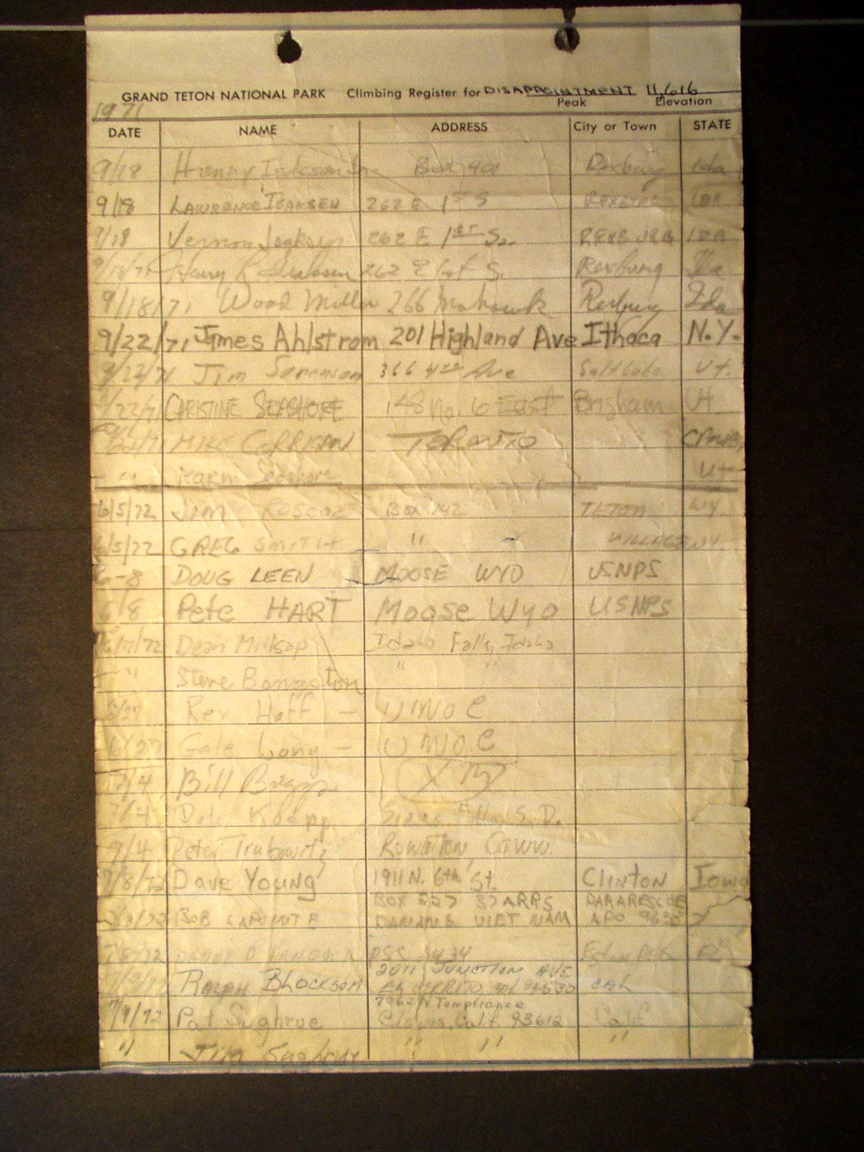 GRAND TETON NATIONAL PARK Climbing Register for DISAPPOINTMENT 11,616
Peak Elevation
1971
DATE NAME ADDRESS City or Town STATE
9/18 Box 401 Rexburg Ida
9/18 LAWRENCE ISAKSEN 262 E 1st S REXBURG IDA
9/18 Vernon 262 E 1st So. REXBURG IDA
9/18/71 262 E 1st S. Rexburg Ida
9/18/71 Wood Miller 266 Mohawk Rexburg Ida
9/22/71 James Ahlstrom 201 Highland Ave Ithaca N.Y.
9/22/71 Jim Sorenson 366 4th Ave Salt Lake Ut.
9/22/71 CHRISTINE SEASHORE 148 No. 6 East Brigham Ut.
9/22/71 MIKE CORRIGAN TORONTO
" " Karen Seashore Ut
6/5/72 JIM ROSCOE Box 142 TETON WY.
6/5/72 GREG SMITH " " VILLAGE WY.
6-8 DOUG LEEN MOOSE WYO USNPS
6/8 Pete HART Moose Wyo USNPS
6/17/72 Dean Millsap Idaho Falls, Idaho
" Steve " "
6/27 Rex Hoff - UMOC
6/27 Gale Long - UMOC
7/4 Bill
7/4 Knapp Sioux Falls S.D.
9/4 Peter Trubowitz Rowayton, Conn.
7/8/72 Dave Young 1911 N. 6th St. CLINTON Iowa
BOX 227 37 ARRS PARARESCUE
7/8/72 BOB LAPOINTE DANANG VIET NAM APO
7/8/72 DANNY
2011 JUNCTION AVE
7/9/72 Ralph BLOCKSOM EL CERRITO CAL 94530 CAL
7962 N Temperance
7/9/72 Pat Sughrue Clovis, Calif. 93612 Calif
" Jim Sughrue " " "